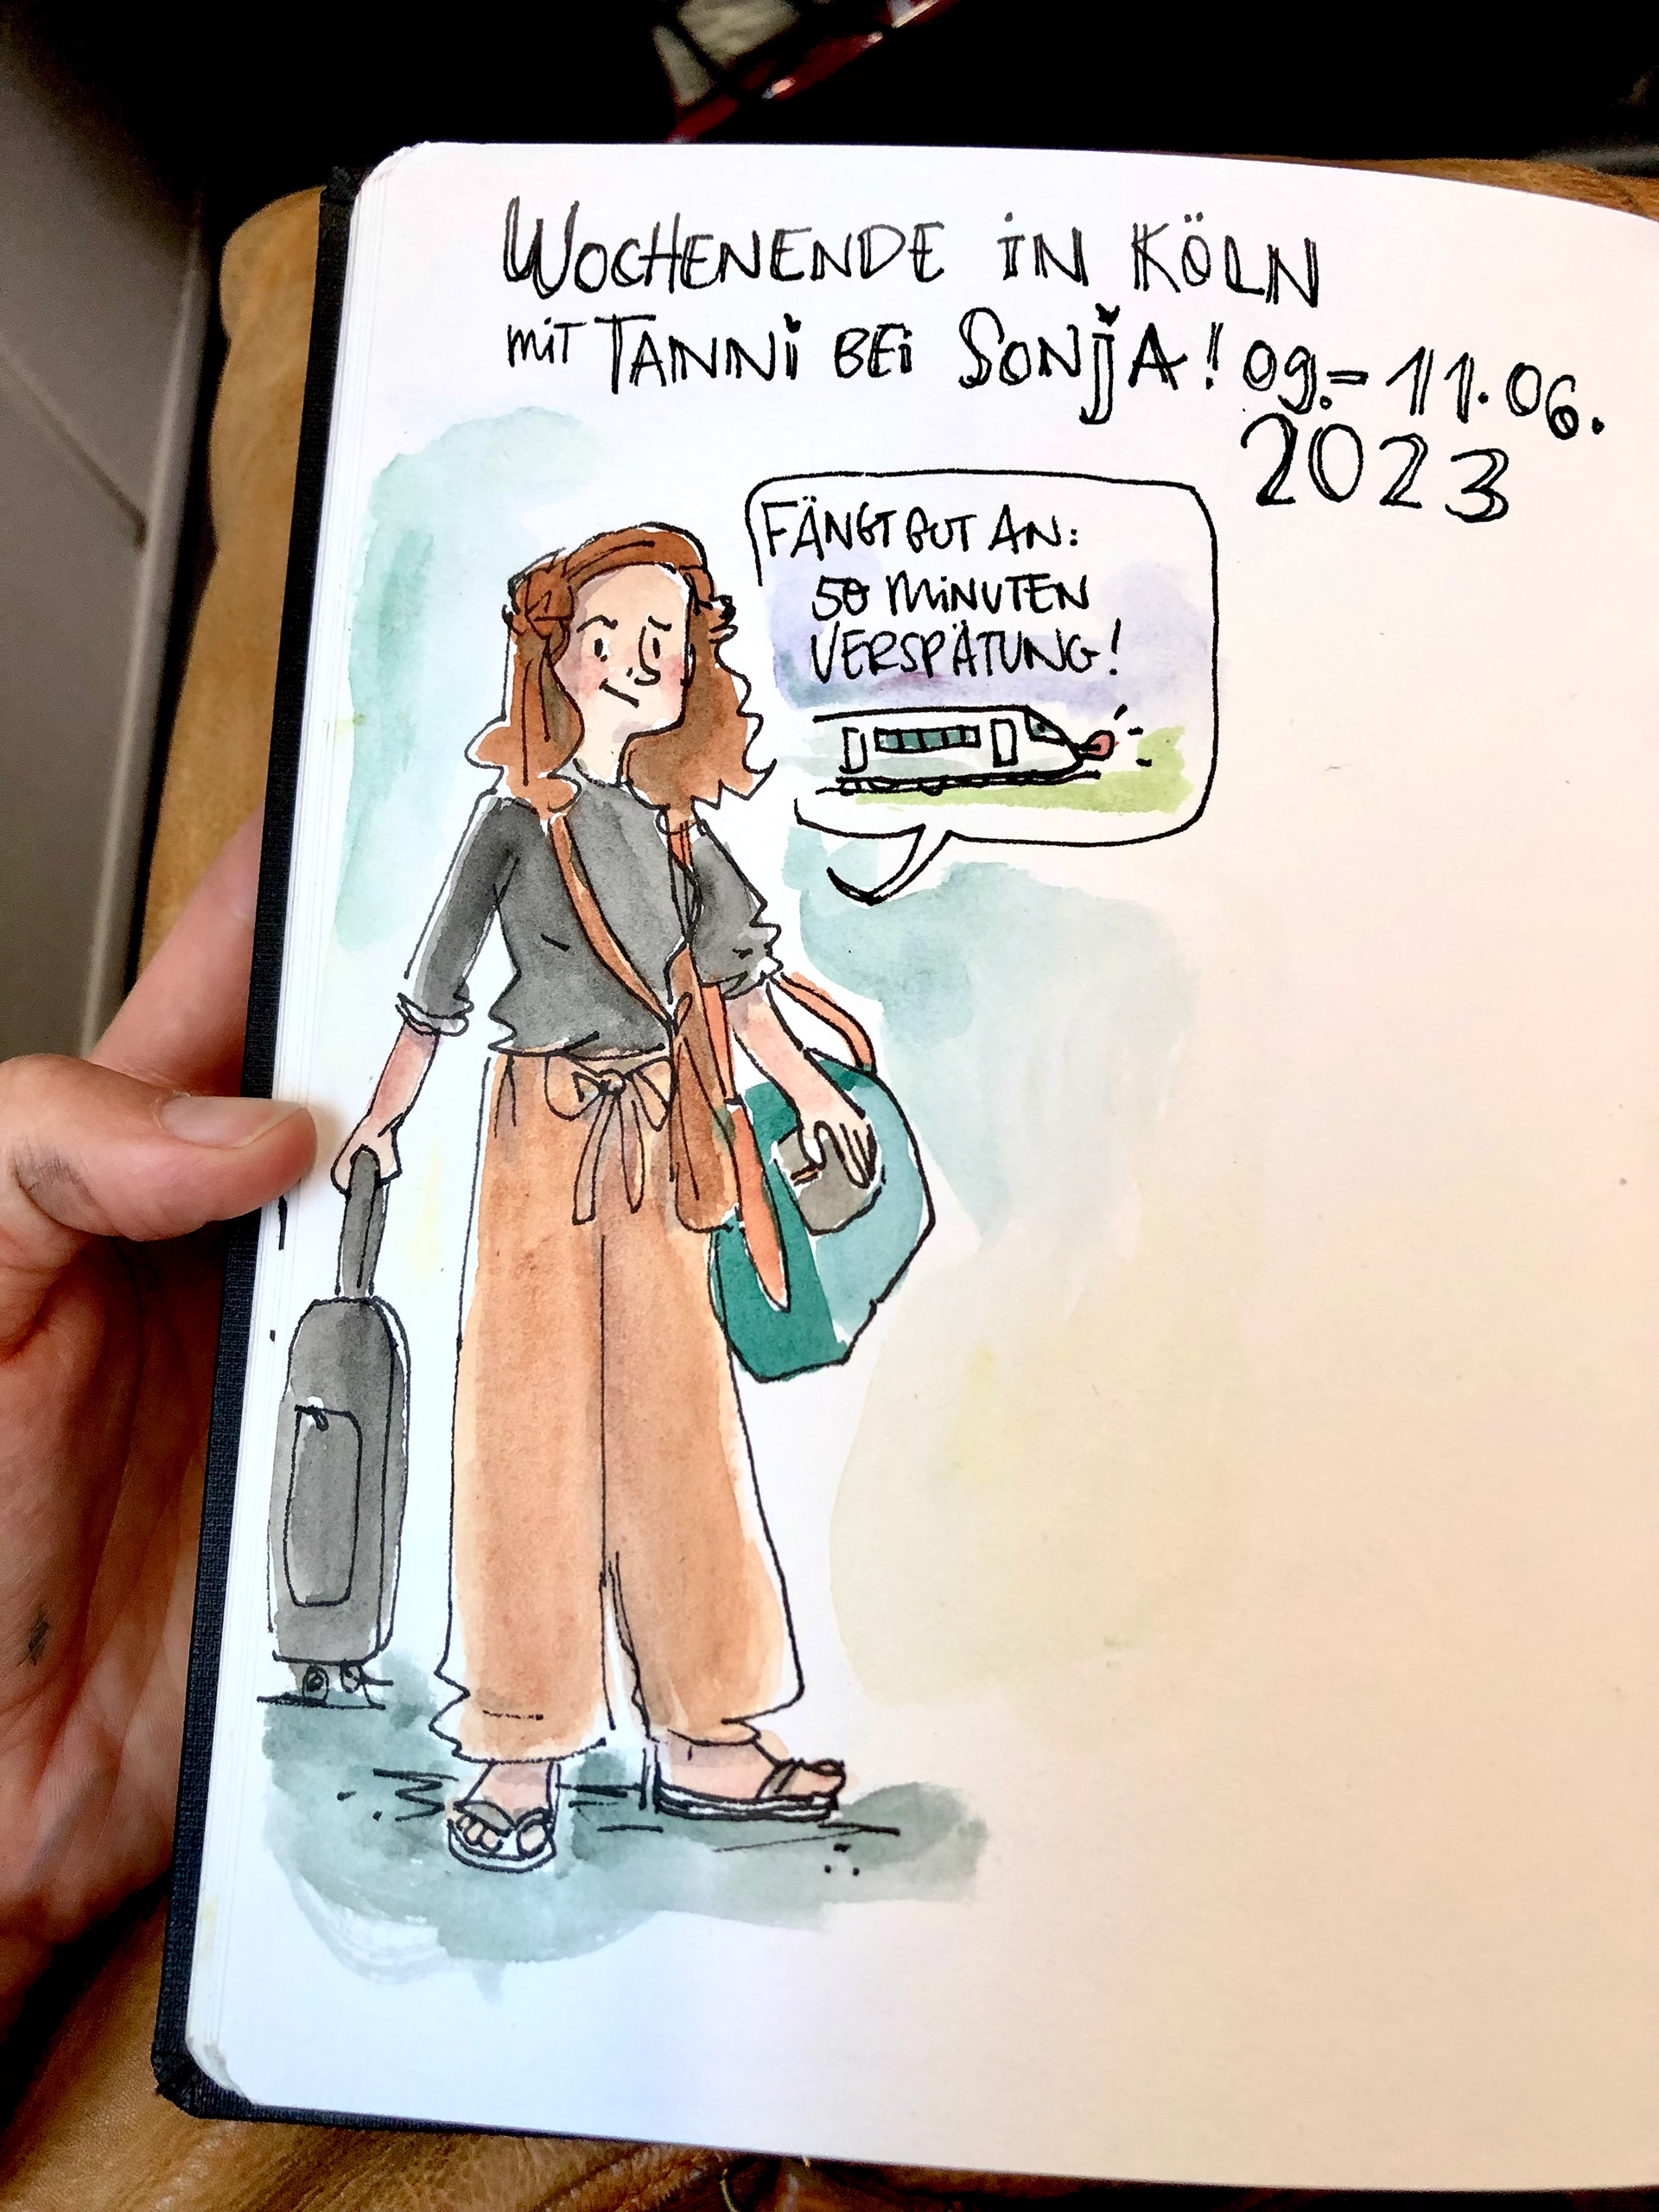 WOCHENENDE IN KÖLN
MIT TANNI BEI SONJA! 09.–11.06.
2023
FÄNGT GUT AN:
50 MINUTEN
VERSPÄTUNG!